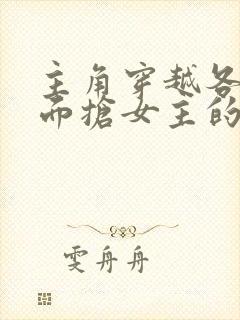 主角穿越各
而抢女主的
雯舟舟